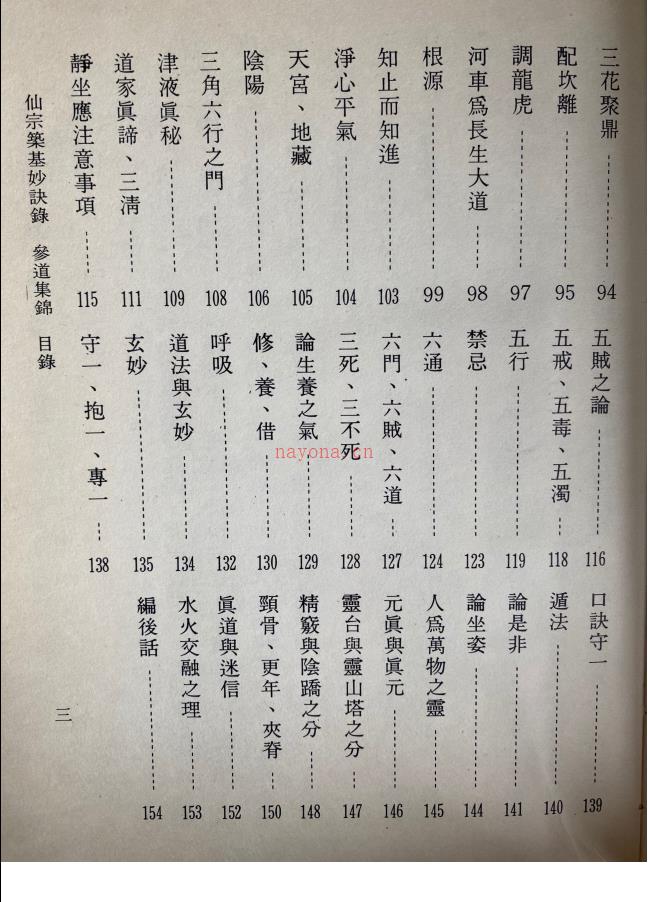 三花聚鼎 94
配坎離 95
調龍虎 97
河車爲長生大道 98
根源 99
知止而知進 103
淨心平氣 104
天宮、地藏 105
陰陽 106
三角六行之門 108
津液眞秘 109
道家眞諦、三淸 111
靜坐應注意事項 115
五賊之論 116
五戒、五毒、五濁 118
五行 119
禁忌 123
六通 124
六門、六賊、六道 127
三死、三不死 128
論生養之氣 129
修、養、借 130
呼吸 132
道法與玄妙 134
玄妙 135
守一、抱一、專一 138
口訣守一 139
遁法 140
論是非 141
論坐姿 144
人爲萬物之靈 145
元眞與眞元 146
靈台與靈山塔之分 147
精竅與陰蹻之分 148
頸骨、更年、夾脊 150
眞道與迷信 152
水火交融之理 153
編後話 154
仙宗築基妙訣錄 參道集錦 目錄
三
nayona.cn